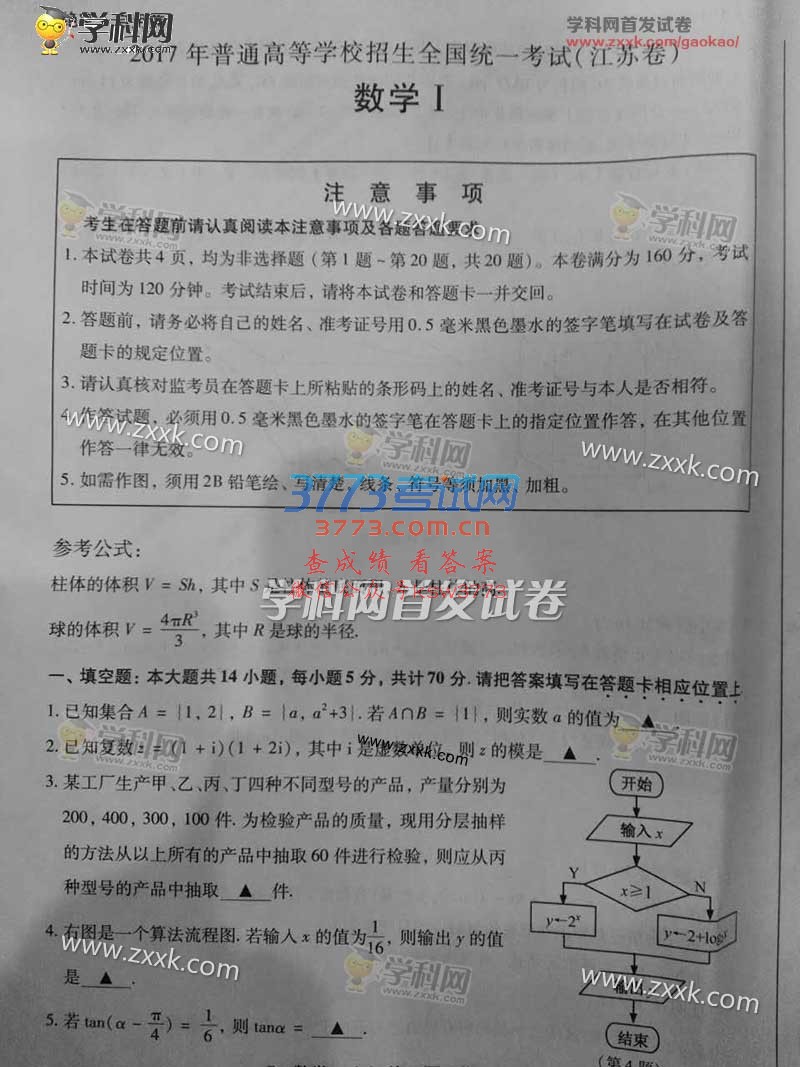 学科网
学科网首发试卷
www.zxxk.com/gaokao/
2017年普通高等学校招生全国统一考试(江苏卷)
数学Ⅰ
学科网
学科网
www.zxxk.com
www.zxxk.com
注意事项
考生在答题前请认真阅读本注意事项及各题答题要求
1. 本试卷共4页，均为非选择题（第1题~第20题，共20题）。本卷满分为160分，考试
时间为120分钟。考试结束后，请将本试卷和答题卡一并交回。
2. 答题前，请务必将自己的姓名、准考证号用0.5毫米黑色墨水的签字笔填写在试卷及答
题卡的规定位置。
3. 请认真核对监考员在答题卡上所粘贴的条形码上的姓名、准考证号与本人是否相符。
4. 作答试题，必须用0.5毫米黑色墨水的签字笔在答题卡上的指定位置作答，在其他位置
作答一律无效。
www.zxxk.com
学科网
www.zxxk.com
5. 如需作图，须用2B铅笔绘、写清楚，线条、符号等须加黑、加粗。
3773考试网
3773.com.cn
查成绩 看答案
参考公式：
柱体的体积V = Sh，其中S
学科网首发试卷
球的体积V = 4πR³/3，其中R是球的半径.
一、填空题：本大题共14小题，每小题5分，共计70分. 请把答案填写在答题卡相应位置上
1. 已知集合A = {1, 2}，B = {a, a²+3}. 若A∩B = {1}，则实数a的值为 ▲
学科网
学科网
2. 已知复数z = (1 + i)(1 + 2i)，其中i是虚数单位，则z的模是 ▲ .
www.zxxk.com
3. 某工厂生产甲、乙、丙、丁四种不同型号的产品，产量分别为
200，400，300，100件. 为检验产品的质量，现用分层抽样
的方法从以上所有的产品中抽取60件进行检验，则应从丙
种型号的产品中抽取 ▲ 件.
4. 右图是一个算法流程图. 若输入x的值为1/16，则输出y的值
是 ▲ .
www.zxxk.com
学科网
www.zxxk.com
5. 若tan(α - π/4) = 1/6，则tanα = ▲ .
开始
输入x
Y
x≥1
N
y←2ˣ
y←2+log
结束
(第4题)